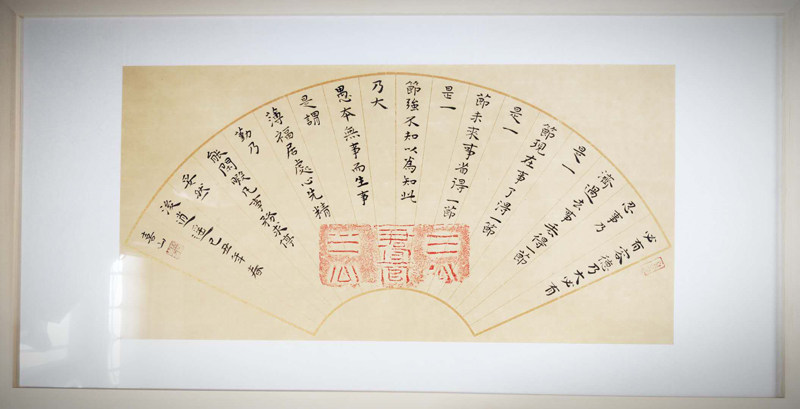 必有容德乃大必有
忍事乃
濟過去事丟得一節
是一
節現在事了得一節
是一
節未來事省得一節
是一
節強不知以為知此
乃大
愚本無事而生事
是謂
薄福居處心先精
勤乃
能閑暇凡事務求停
妥然
後逍遙己丑年春